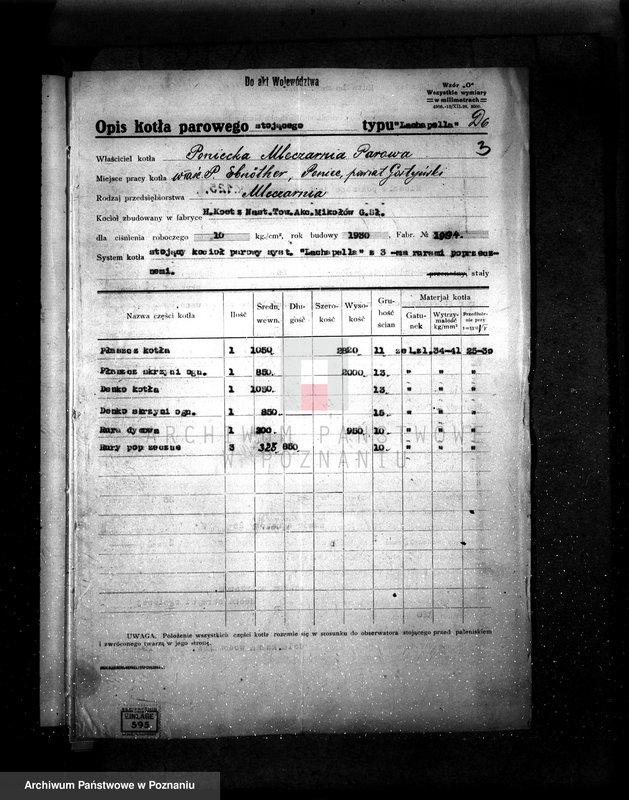 Do akt Województwa
Wzór „O"
Wszystkie wymiary
w milimetrach
Opis kotła parowego stojącego typu "Lachapella" D6
3
Właściciel kotła Poniecka Mleczarnia Parowa
Miejsce pracy kotła właśc. P. Ebnöther, Poniec, powiat Gostyński
Rodzaj przedsiębiorstwa Mleczarnia
Kocioł zbudowany w fabryce H.Koetz Nast.Tow.Akc.Mikołów G.Śl.
dla ciśnienia roboczego 10 kg./cm², rok budowy 1930 Fabr. № 1994.
System kotła stojący kocioł parowy syst. "Lachapella" z 3 -ma rurami poprzecz-
nemi. przenośny, stały
Nazwa części kotła Ilość Średn. wewn. Długość Szerokość Wysokość Grubość ścian Materjał kotła
Gatunek Wytrzymałość kg/mm² Przedłużenie przy
Płaszcz kotła 1 1050. 2820 11 zel.zl. 34-41 25-30
Płaszcz skrzyni ogn. 1 850. 2000 13. " " "
Denko kotła 1 1050. 13. " " "
Denko skrzyni ogn. 1 850. 15. " " "
Rura dymowa 1 200. 950 10. " " "
Rury poprzeczne 3 325 850 10. " " "
ARCHIWUM PAŃSTWOWE
W POZNANIU
UWAGA. Położenie wszystkich części kotła rozumie się w stosunku do obserwatora stojącego przed paleniskiem
i zwróconego twarzą w jego stronę.
EINLAGE
595
Archiwum Państwowe w Poznaniu